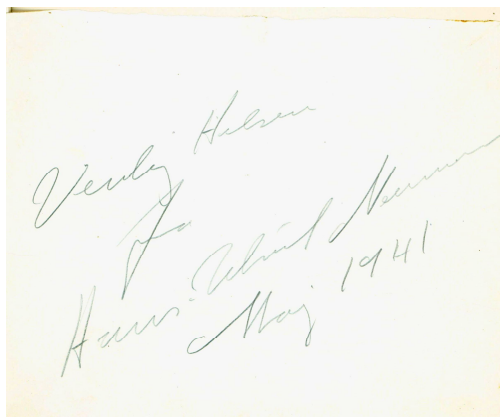 Venlig Hilsen
fra
Hans-Ulrich Neumann
Maj 1941